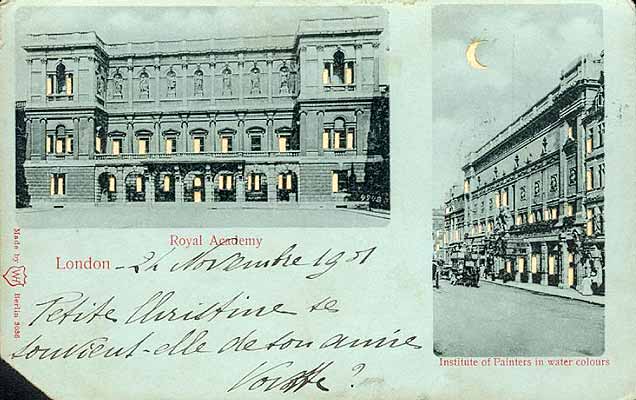 Royal Academy
London - 24 Novembre 1901
Petite Christine se
souvient-elle de son amie
Institute of Painters in water colours
Made by WH Berlin 3086